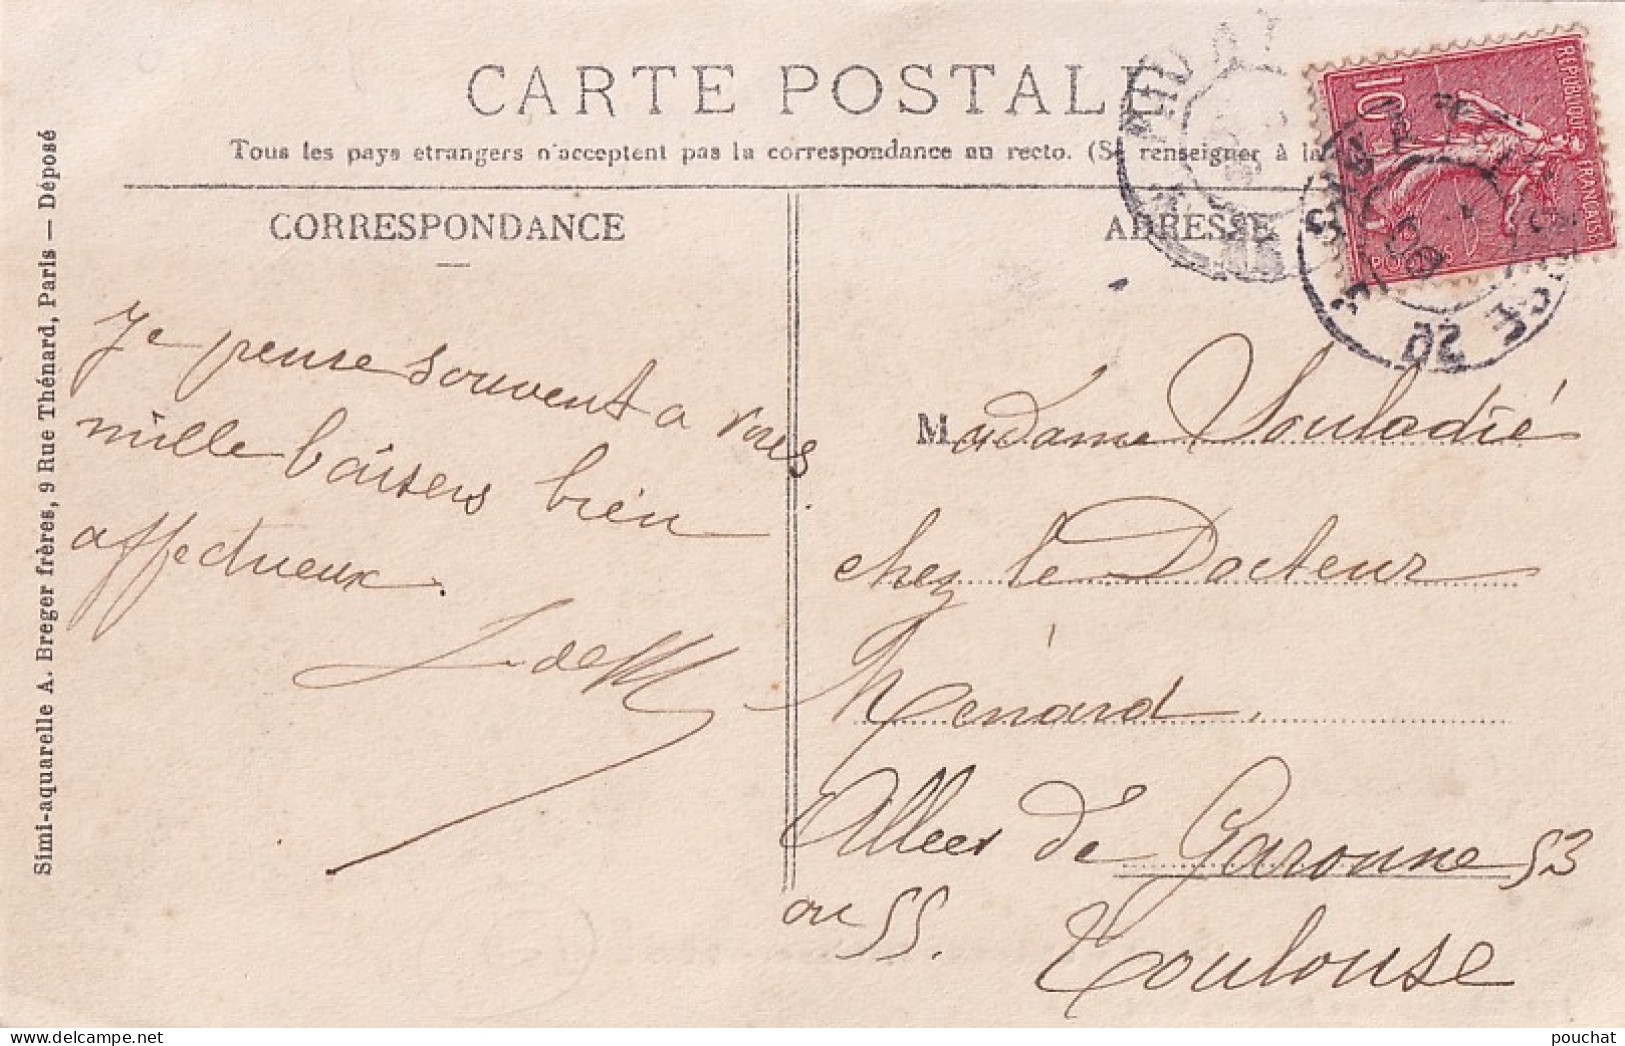 CARTE POSTALE
Tous les pays etrangers n'acceptent pas la correspondance au recto. (Se renseigner à la
CORRESPONDANCE
ADRESSE
Simi-aquarelle A. Breger frères, 9 Rue Thénard, Paris — Déposé
10
REPUBLIQUE FRANÇAISE
POSTES
Je pense souvent a vous
mille baisers bien
affectueux.
Madame Souladié
chez le Docteur
Ménard.
Allees de Garonne 53
ou 55.
Toulouse
pouchat